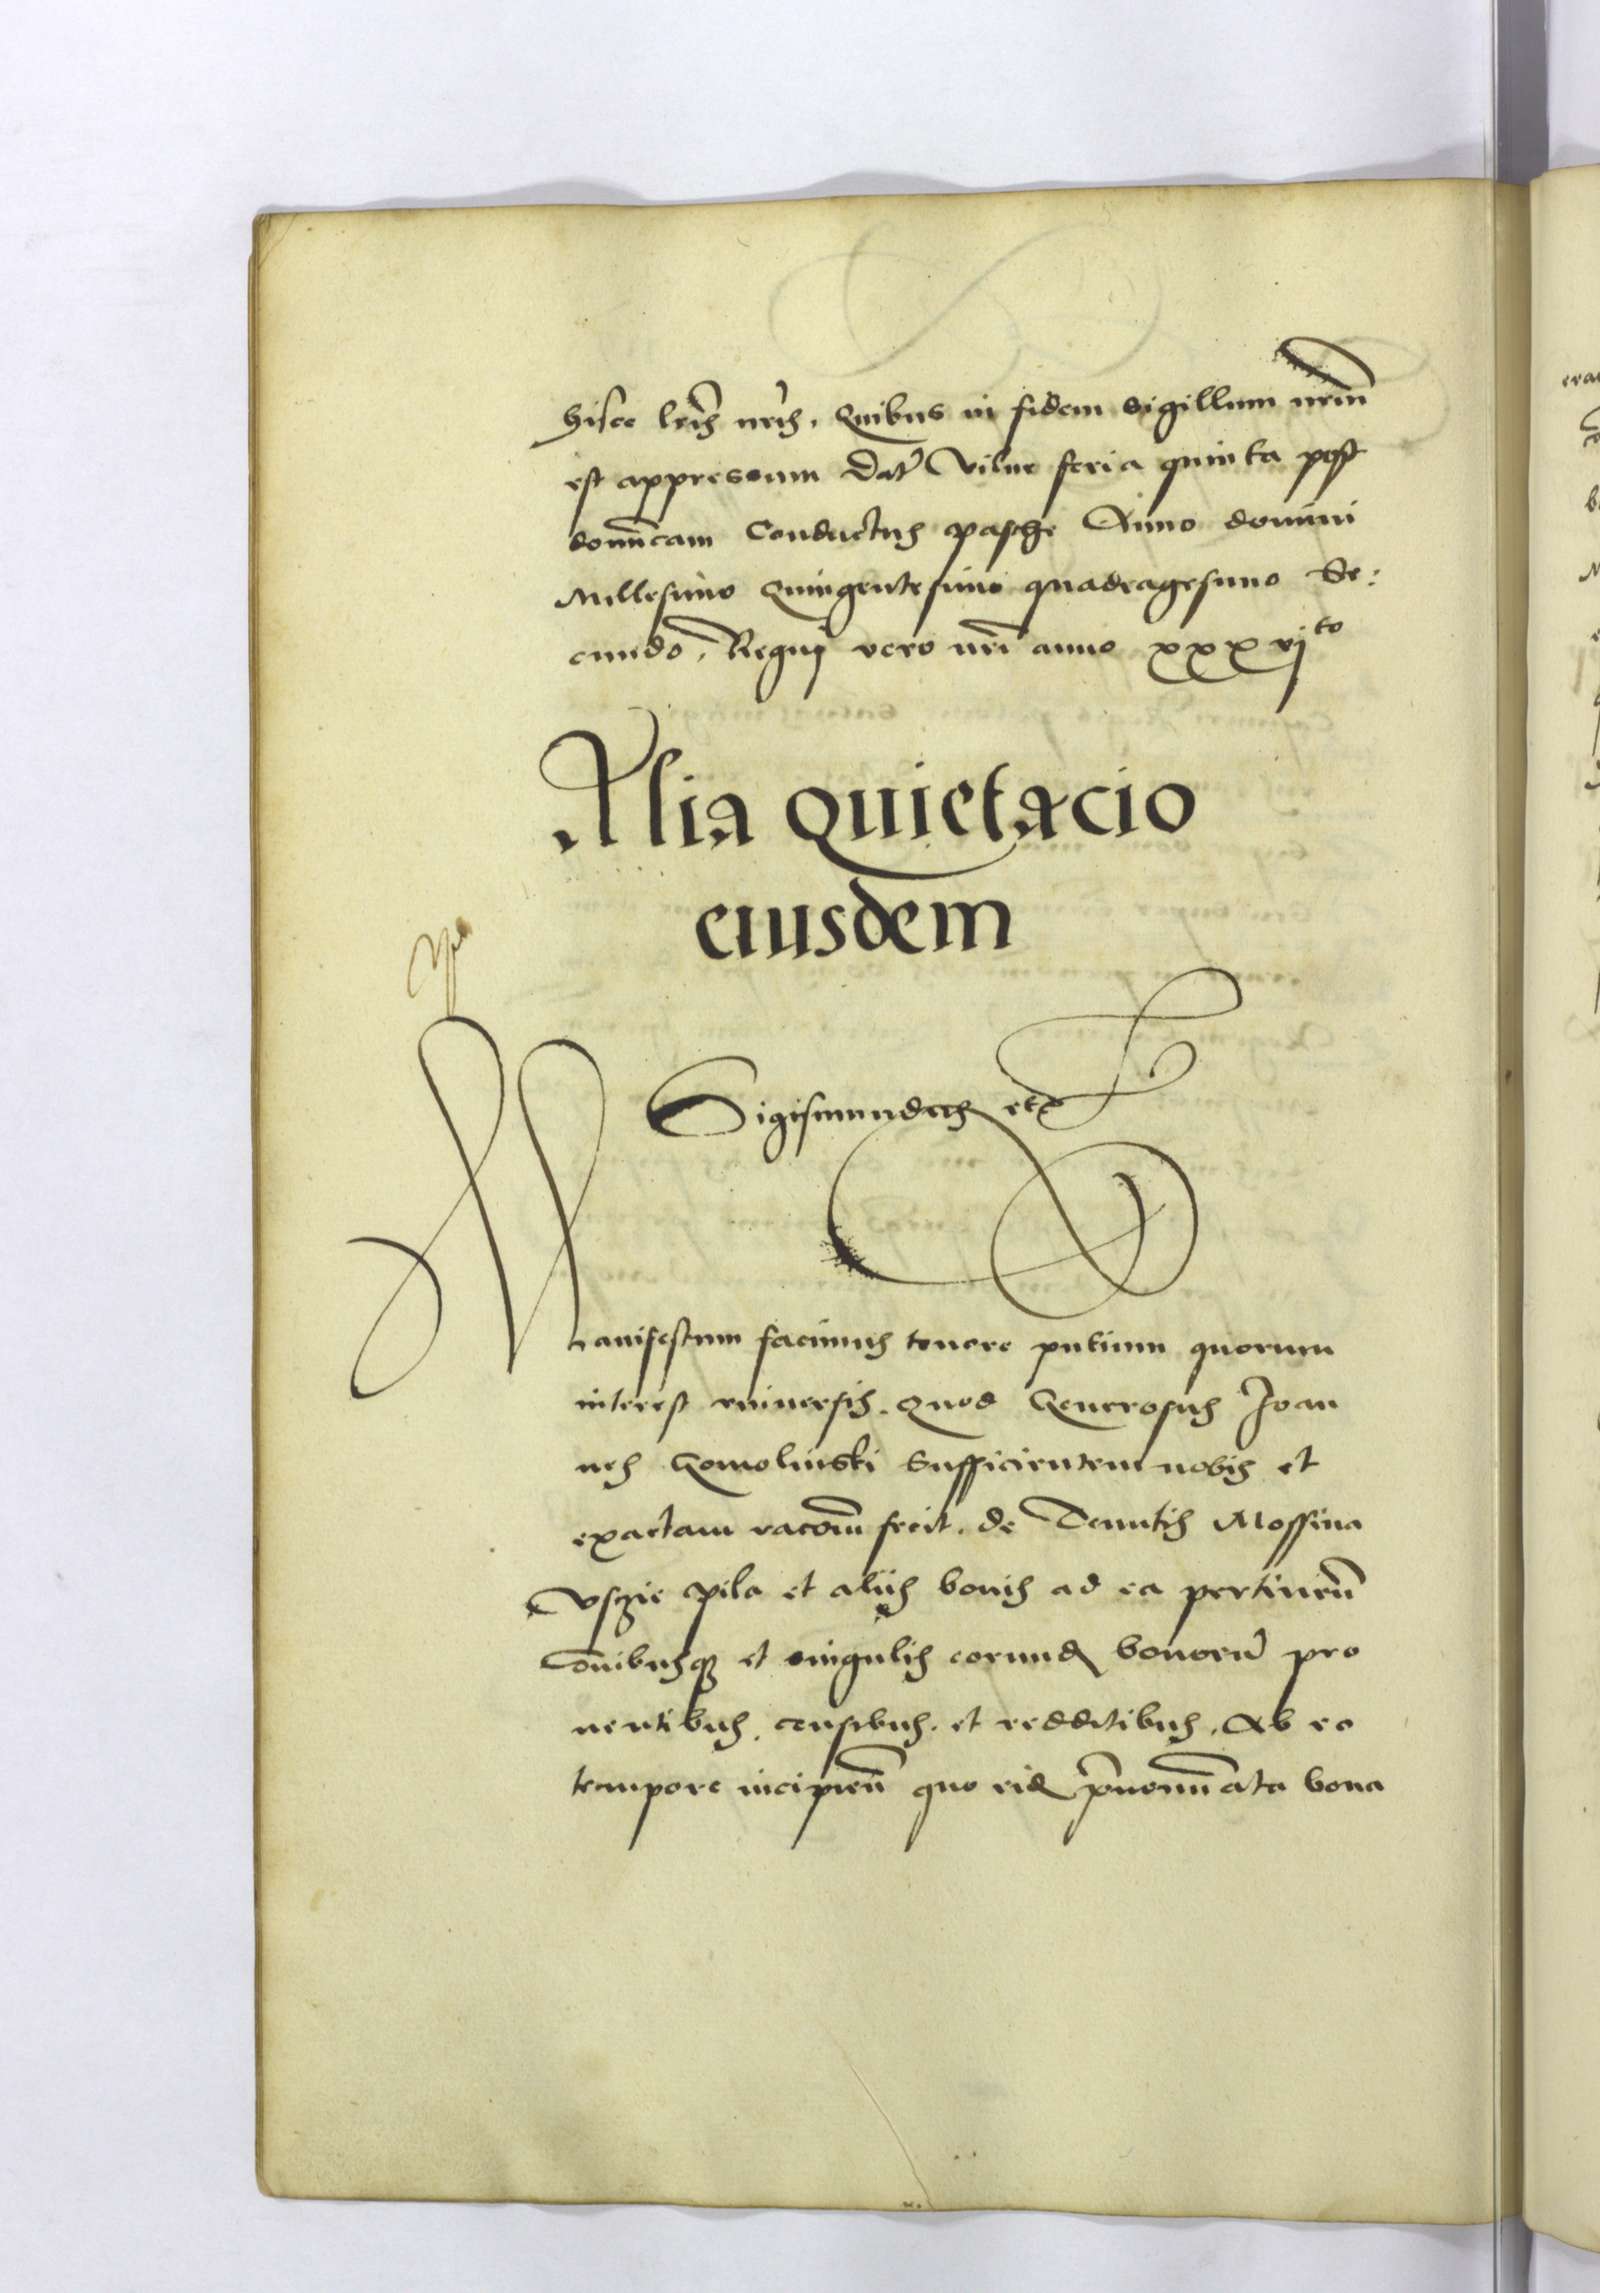 hisce lr̃is nr̃is. Quibus in fidem sigillum nrm̃
est appressum Dat̃ Vilne feria quinta post
domĩcam Conductus pasche Anno domini
Millesimo Quingentesimo quadragesimo Se:
cundo. Regnj vero nri̅ anno xxxvjto
Alia quietacio
eiusdem
Sigismundus etc
Manifestum facimus tenore pn̅tium quorum
interest vniuersis. Quod Generosus Joan
nes Gomolinski Sufficientem nobis et
exactam racõm fecit. de Tenutis Mossina
Vsczie Pila et alijs bonis ad ea pertinen̅
Om̅ibusq; et singulis eorund bonoru̅ pro
uentibus. censibus. et redditibus. Ab eo
tempore incipien̅ quo eid p̅nomi̅ata bona